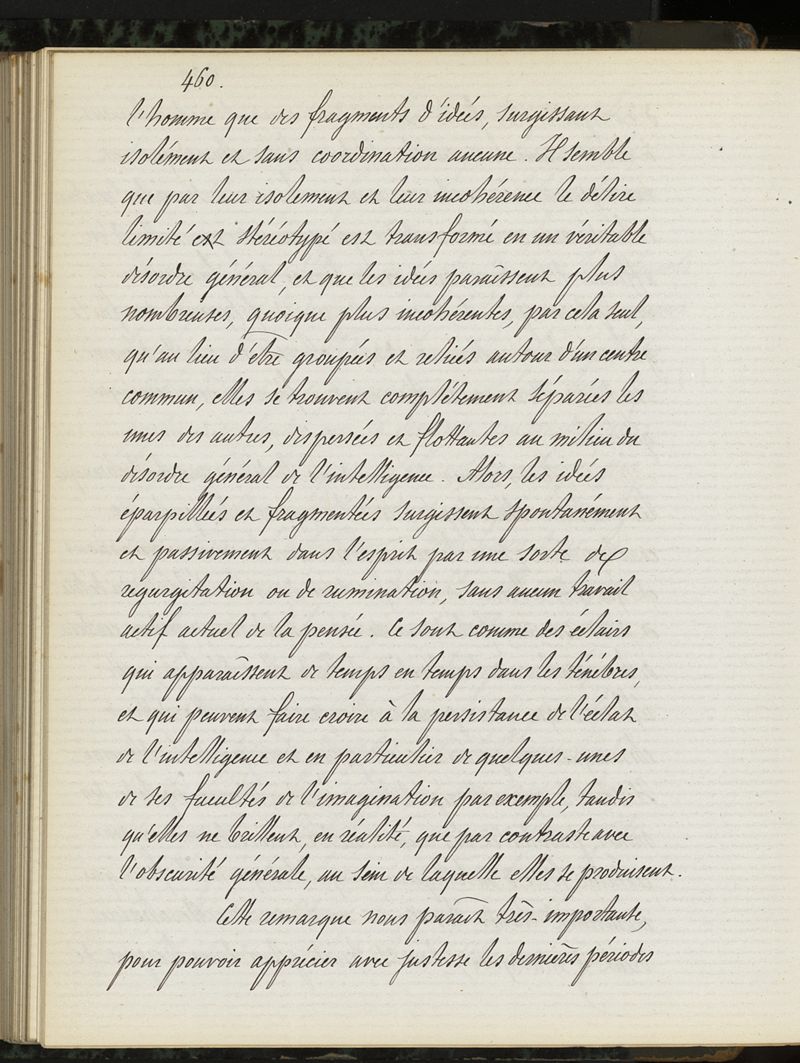 460.
l'homme que des fragments d'idées, surgissant
isolément et sans coordination aucune. Il semble
que par leur isolement et leur incohérence le délire
limité est stéréotypé est transformé en un véritable
désordre général, et que les idées paraissent plus
nombreuses, quoique plus incohérentes, par cela seul,
qu'au lieu d'être groupées et reliés autour d'un centre
commun, elles se trouvent complétement séparées les
unes des autres, dispersées et flottantes au milieu du
désordre général de l'intelligence. Alors, les idées
éparpillées et fragmentées surgissent spontanément
et passivement dans l'esprit par une sorte de
regurgitation ou de rumination, sans aucun travail
actif actuel de la pensée. Ce sont comme des éclairs
qui apparaissent de temps en temps dans les ténébres,
et qui peuvent faire croire à la persistance de l'éclat
de l'intelligence et en particulier de quelques-unes
de ses facultés de l'imagination par exemple, tandis
qu'elles ne brillent, en réalité, que par contraste avec
l'obscurité générale, au sein de laquelle elles se produisent.
Cette remarque nous paraît très-importante,
pour pouvoir apprécier avec justesse les dernières périodes